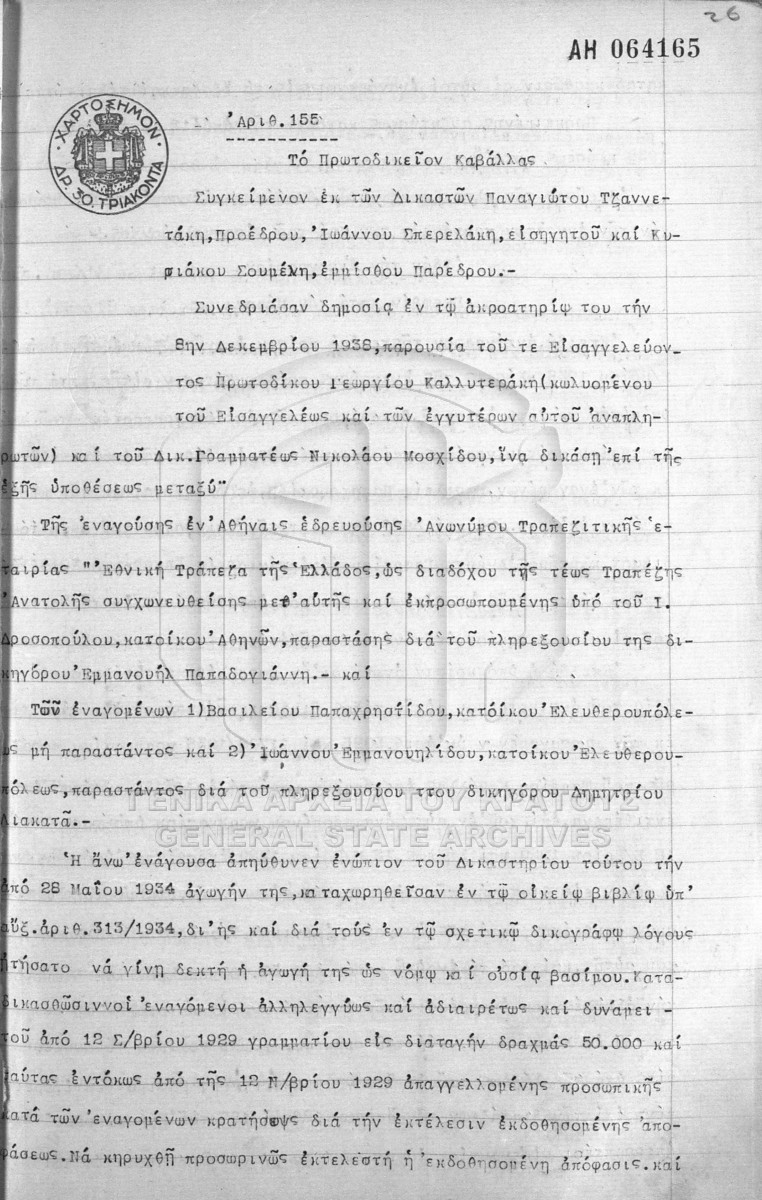 26
ΑΗ 064165
ΧΑΡΤΟΣΗΜΟΝ
ΔΡ. 30. ΤΡΙΑΚΟΝΤΑ
Ἀριθ.155
Τό Πρωτοδικεῖον Καβάλλας
Συγκείμενον ἐκ τῶν Δικαστῶν Παναγιώτου Τζαννε-
τάκη,Προέδρου,Ἰωάννου Σπερελάκη,εἰσηγητοῦ καί Κυ-
ριάκου Σουμέλη,ἐμμίσθου Παρέδρου.-
Συνεδριάσαν δημοσίᾳ ἐν τῷ ἀκροατηρίῳ του τήν
8ην Δεκεμβρίου 1938,παρουσία τοῦ τε Εἰσαγγελεύον-
τος Πρωτοδίκου Γεωργίου Καλλυτεράκη(κωλυομένου
τοῦ Εἰσαγγελέως καί τῶν ἐγγυτέρων αὐτοῦ ἀναπλη-
ρωτῶν) καί τοῦ Δικ.Γραμματέως Νικολάου Μοσχίδου,ἵνα δικάσῃ ἐπί τῆς
ἑξῆς ὑποθέσεως μεταξύ"
Τῆς ἐναγούσης ἐν Ἀθήναις ἑδρευούσης Ἀνωνύμου Τραπεζιτικῆς ἑ-
ταιρίας "Ἐθνική Τράπεζα τῆς Ἑλλάδος,ὡς διαδόχου τῆς τέως Τραπέζης
Ἀνατολῆς συγχωνευθείσης μετ'αὐτῆς καί ἐκπροσωπουμένης ὑπό τοῦ Ι.
Δροσοπούλου,κατοίκου Ἀθηνῶν,παραστάσης διά τοῦ πληρεξουσίου της δι-
κηγόρου Ἐμμανουήλ Παπαδογιάννη.- καί
Τῶν ἐναγομένων 1)Βασιλείου Παπαχρηστίδου,κατοίκου Ἐλευθερουπόλε-
ως μή παραστάντος καί 2)Ἰωάννου Ἐμμανουηλίδου,κατοίκου Ἐλευθερου-
πόλεως,παραστάντος διά τοῦ πληρεξουσίου ττου δικηγόρου Δημητρίου
Λιακατᾶ.-
ΓΕΝΙΚΑ ΑΡΧΕΙΑ ΤΟΥ ΚΡΑΤΟΥΣ
GENERAL STATE ARCHIVES
Ἡ ἄνω ἐνάγουσα ἀπηύθυνεν ἐνώπιον τοῦ Δικαστηρίου τούτου τήν
ἀπό 28 Μαΐου 1934 ἀγωγήν της,καταχωρηθεῖσαν ἐν τῷ οἰκείῳ βιβλίῳ ὑπ'
αὔξ.ἀριθ.313/1934,δι'ἧς καί διά τούς ἐν τῷ σχετικῷ δικογράφῳ λόγους
ᾐτήσατο νά γίνῃ δεκτή ἡ ἀγωγή της ὡς νόμῳ καί οὐσίᾳ βασίμου.Κατα-
δικασθῶσιννοἱ ἐναγόμενοι ἀλληλεγγύως καί ἀδιαιρέτως καί δυνάμει -
τοῦ ἀπό 12 Σ/βρίου 1929 γραμματίου εἰς διαταγήν δραχμάς 50.000 καί
ταύτας ἐντόκως ἀπό τῆς 12 Ν/βρίου 1929 ἀπαγγελλομένης προσωπικῆς
κατά τῶν ἐναγομένων κρατήσεως διά τήν ἐκτέλεσιν ἐκδοθησομένης ἀπο-
φάσεως.Νά κηρυχθῇ προσωρινῶς ἐκτελεστή ἡ ἐκδοθησομένη ἀπόφασις.καί